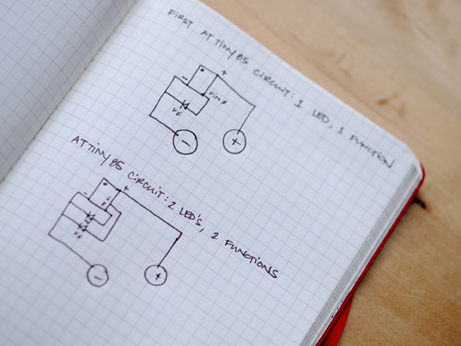 FIRST ATTINY85 CIRCUIT: 1 LED, 1 FUNCTION
- +
PIN 0
- +
ATTINY85 CIRCUIT: 2 LED'S, 2 FUNCTIONS
- +
- +